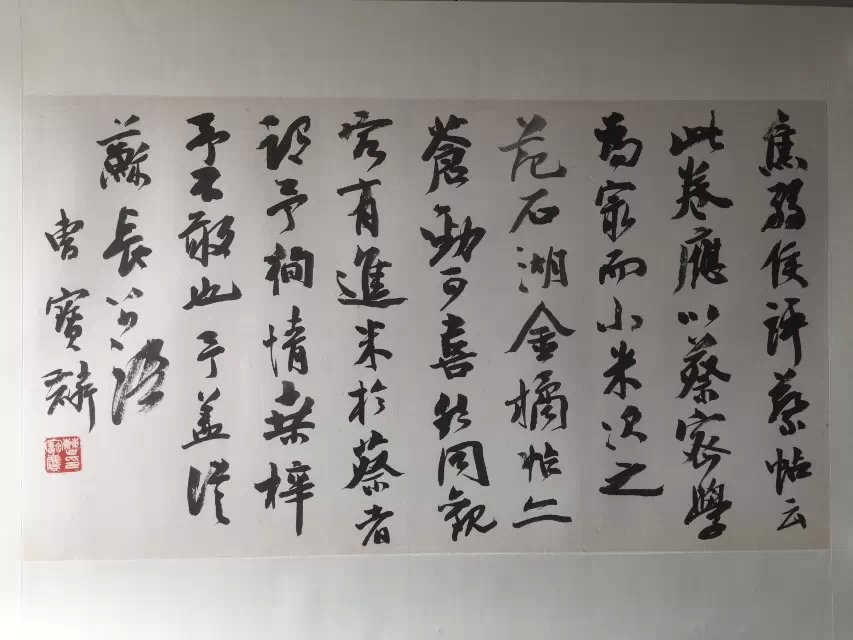 焦弱侯評蔡帖云
此卷應以蔡密學
為最而小米次之
范石湖金橘帖亦
蒼勁可喜然同觀
客有進米於蔡者
謂予徇情桑梓
予不敢也予蓋從
蘇長公語
曹寶麟